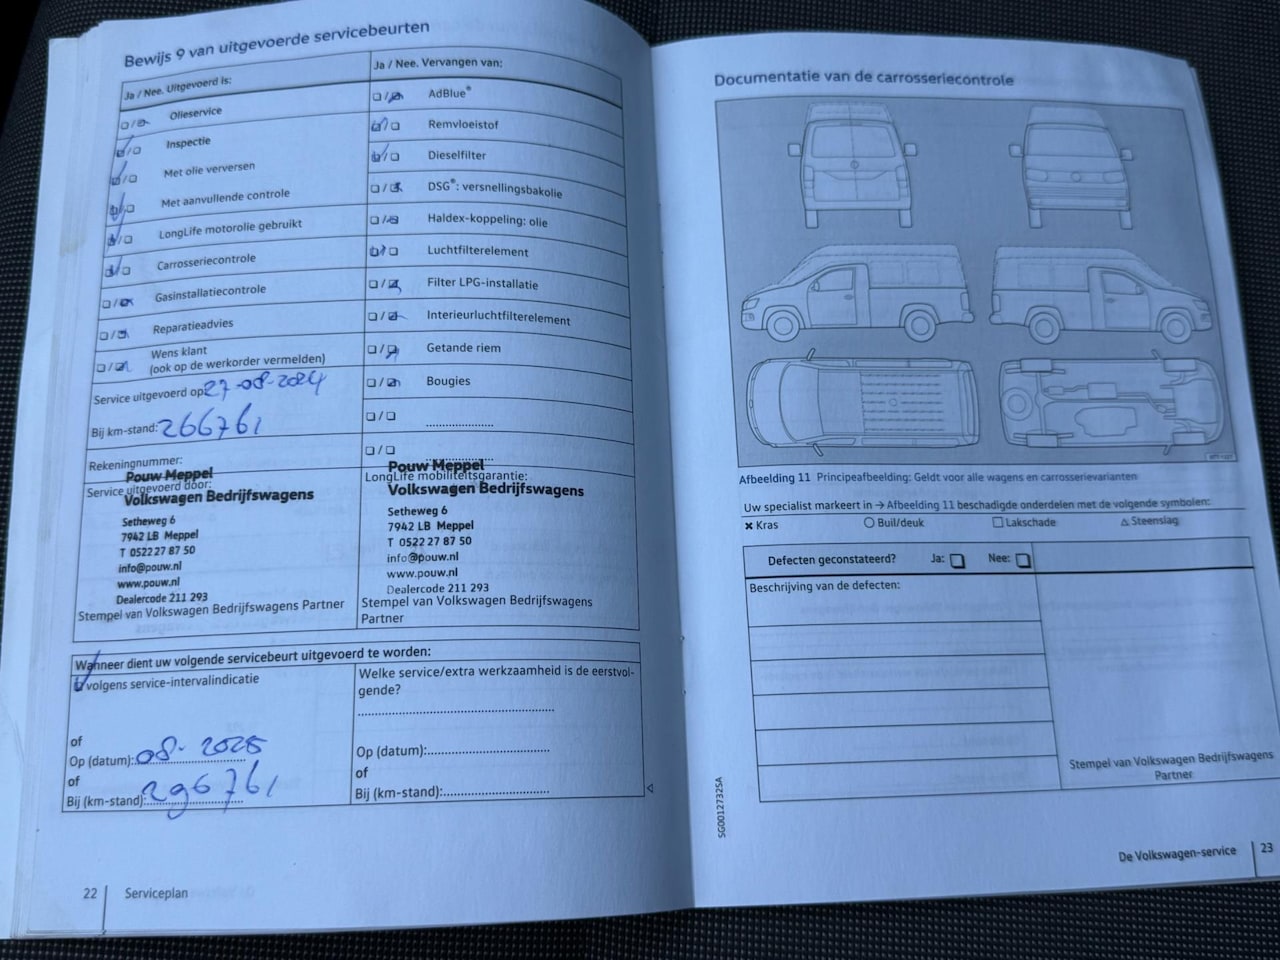 Bewijs 9 van uitgevoerde servicebeurten
Ja / Nee. Uitgevoerd is:
Olieservice
Inspectie
Met olie verversen
Met aanvullende controle
LongLife motorolie gebruikt
Carrosseriecontrole
Gasinstallatiecontrole
Reparatieadvies
Wens klant
(ook op de werkorder vermelden)
Service uitgevoerd op: 27-08-2024
Bij km-stand: 266761
Rekeningnummer:
Service uitgevoerd door:
Pouw Meppel
Volkswagen Bedrijfswagens
Setheweg 6
7942 LB Meppel
T 0522 27 87 50
info@pouw.nl
www.pouw.nl
Dealercode 211 293
Stempel van Volkswagen Bedrijfswagens Partner
Ja / Nee. Vervangen van:
AdBlue®
Remvloeistof
Dieselfilter
DSG®: versnellingsbakolie
Haldex-koppeling: olie
Luchtfilterelement
Filter LPG-installatie
Interieurluchtfilterelement
Getande riem
Bougies
LongLife mobiliteitsgarantie:
Pouw Meppel
Volkswagen Bedrijfswagens
Setheweg 6
7942 LB Meppel
T 0522 27 87 50
info@pouw.nl
www.pouw.nl
Dealercode 211 293
Stempel van Volkswagen Bedrijfswagens
Partner
Wanneer dient uw volgende servicebeurt uitgevoerd te worden:
volgens service-intervalindicatie
of
Op (datum): 08-2025
of
Bij (km-stand): 296761
Welke service/extra werkzaamheid is de eerstvol-
gende?
Op (datum):
of
Bij (km-stand):
22 Serviceplan
Documentatie van de carrosseriecontrole
Afbeelding 11 Principeafbeelding: Geldt voor alle wagens en carrosserievarianten
Uw specialist markeert in → Afbeelding 11 beschadigde onderdelen met de volgende symbolen:
Kras Buil/deuk Lakschade Steenslag
Defecten geconstateerd? Ja: Nee:
Beschrijving van de defecten:
Stempel van Volkswagen Bedrijfswagens
Partner
SG0012732SA
De Volkswagen-service 23